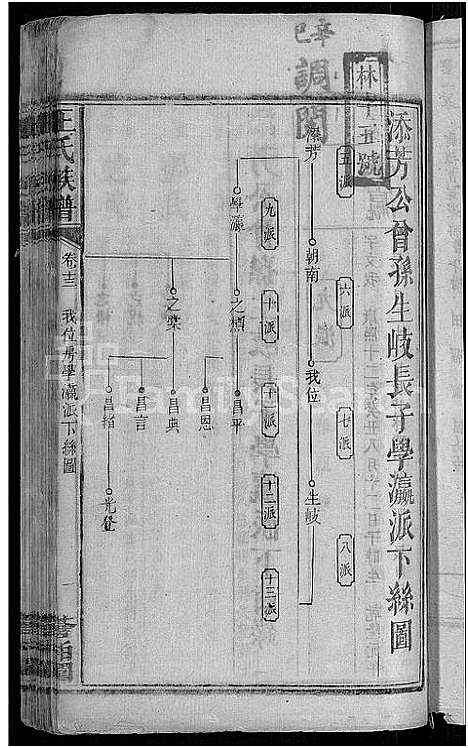 添芳公曾孫生岐長子學瀛派下絲圖
林字五號
辛巳
調閱
五派
六派
七派
八派
添芳
朝南
我位
生岐
九派
十派
十一派
十二派
十三派
學瀛
之櫍
昌平
昌恩
之棠
昌典
昌言
昌緒
光登
王氏族譜
卷十三
我位房學瀛派下絲圖
一
FamilySearch